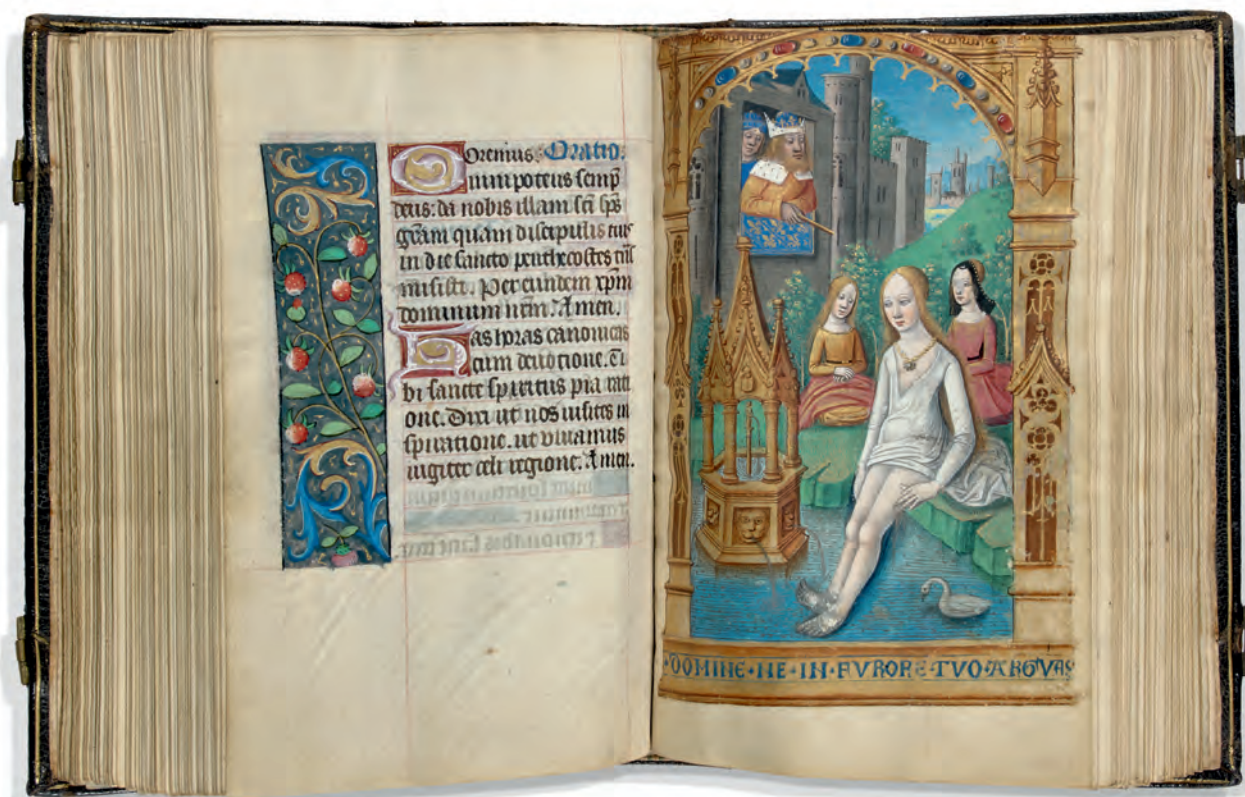 Oremus: Oratio.
Omnipotens semp̄
deus: da nobis illam sc̄i sp̄s
gr̄am quam discipulis tuis
in die sancto penthecostes
misisti. Per eundem xp̄m
dominum nr̄m. Amen.
Has horas canonicas
cum deuotione. Ti
bi sancte spiritus pia rati
one. Dixi ut nos uisites in
spiratione. ut viuamus
iugiter celi regione. Amen.
·DOMINE·NE·IN·FVRORE·TVO·ARGVAS